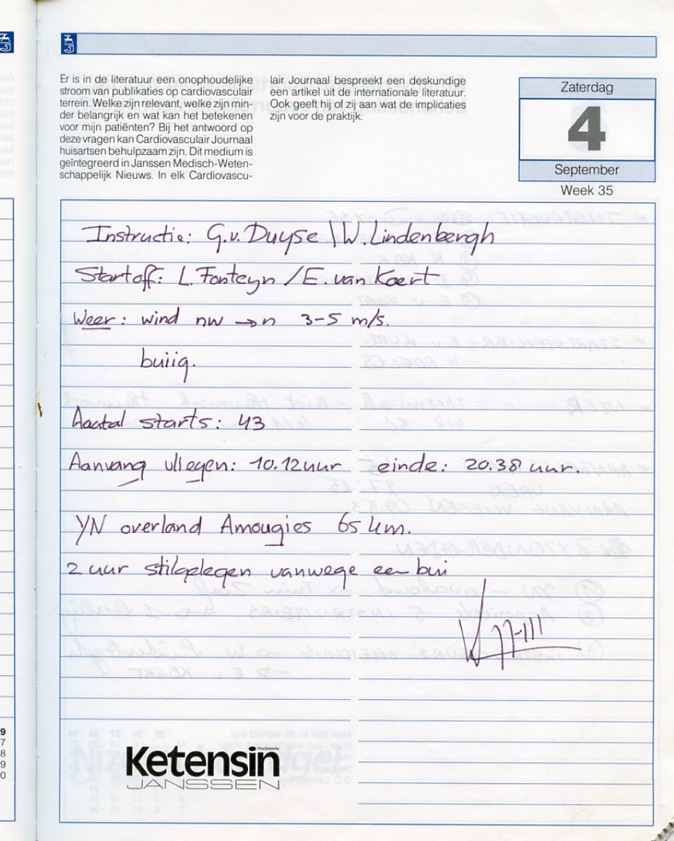 Er is in de literatuur een onophoudelijke
stroom van publikaties op cardiovasculair
terrein. Welke zijn relevant, welke zijn min-
der belangrijk en wat kan het betekenen
voor mijn patiënten? Bij het antwoord op
deze vragen kan Cardiovasculair Journaal
huisartsen behulpzaam zijn. Dit medium is
geïntegreerd in Janssen Medisch-Weten-
schappelijk Nieuws. In elk Cardiovascu-
lair Journaal bespreekt een deskundige
een artikel uit de internationale literatuur.
Ook geeft hij of zij aan wat de implicaties
zijn voor de praktijk.
Zaterdag
4
September
Week 35
Instructie: G.v. Duyse \ W. Lindenbergh
Startoff: L. Fonteyn / E. van Koert
Weer: wind nw → n 3-5 m/s.
buiig.
Aantal starts: 43
Aanvang vliegen: 10.12 uur einde: 20.38 uur.
YN overland Amougies 65 km.
2 uur stilgelegen vanwege een bui
Ketensin
JANSSEN